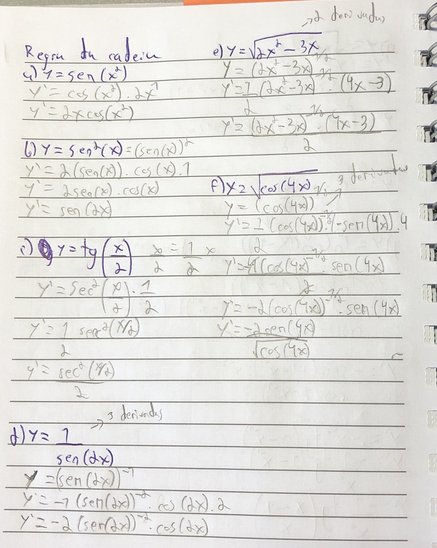 Regra da cadeia
a) y = sen(x²)
y' = cos(x²) . 2x¹
y' = 2x cos(x²)
b) y = sen²(x) = (sen(x))²
y' = 2(sen(x)) . cos(x) . 1
y' = 2sen(x) . cos(x)
y' = sen(2x)
c) y = tg(x/2) x/2 = 1/2 x
y' = sec²(x/2) . 1/2
y' = 1/2 sec²(x/2)
y' = sec²(x/2)/2
→ 3 derivadas
d) y = 1/sen(2x)
y = (sen(2x))⁻¹
y' = -1(sen(2x))⁻² . cos(2x) . 2
y' = -2(sen(2x))⁻² . cos(2x)
→ 2 derivadas
e) y = √(2x² - 3x)
y = (2x² - 3x)^1/2
y' = 1/2 (2x² - 3x)^-1/2 . (4x - 3)
y' = (2x² - 3x)^-1/2 . (4x - 3)/2
→ 3 derivadas
f) y = √cos(4x)
y = (cos(4x))^1/2
y' = 1/2 (cos(4x))^-1/2 . -sen(4x) . 4
y' = -4/2 (cos(4x))^-1/2 . sen(4x)
y' = -2(cos(4x))^-1/2 . sen(4x)
y' = -2sen(4x)/√cos(4x)